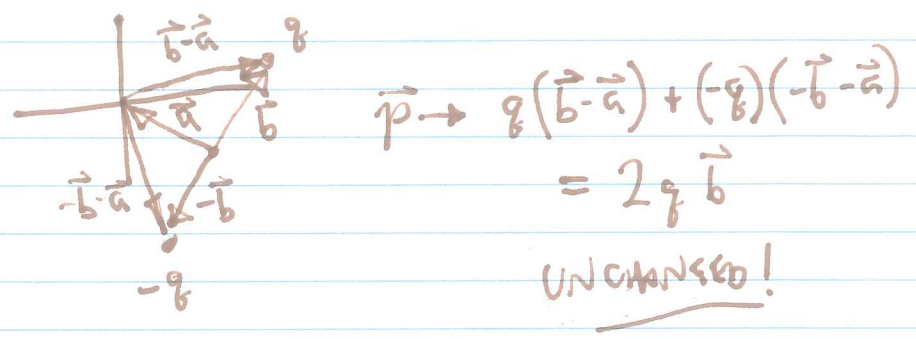 b⃗-a⃗
q
a⃗
b⃗
-b⃗-a⃗
-b⃗
-q
p⃗ → q(b⃗-a⃗) + (-q)(-b⃗-a⃗)
= 2q b⃗
UNCHANGED!